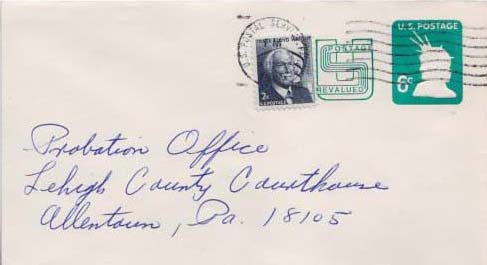 U.S. POSTAL SERVICE
Frank Lloyd Wright
2¢
U.S. POSTAGE
U.S. POSTAGE
REVALUED
U.S. POSTAGE
6c
Probation Office
Lehigh County Courthouse
Allentown, Pa. 18105